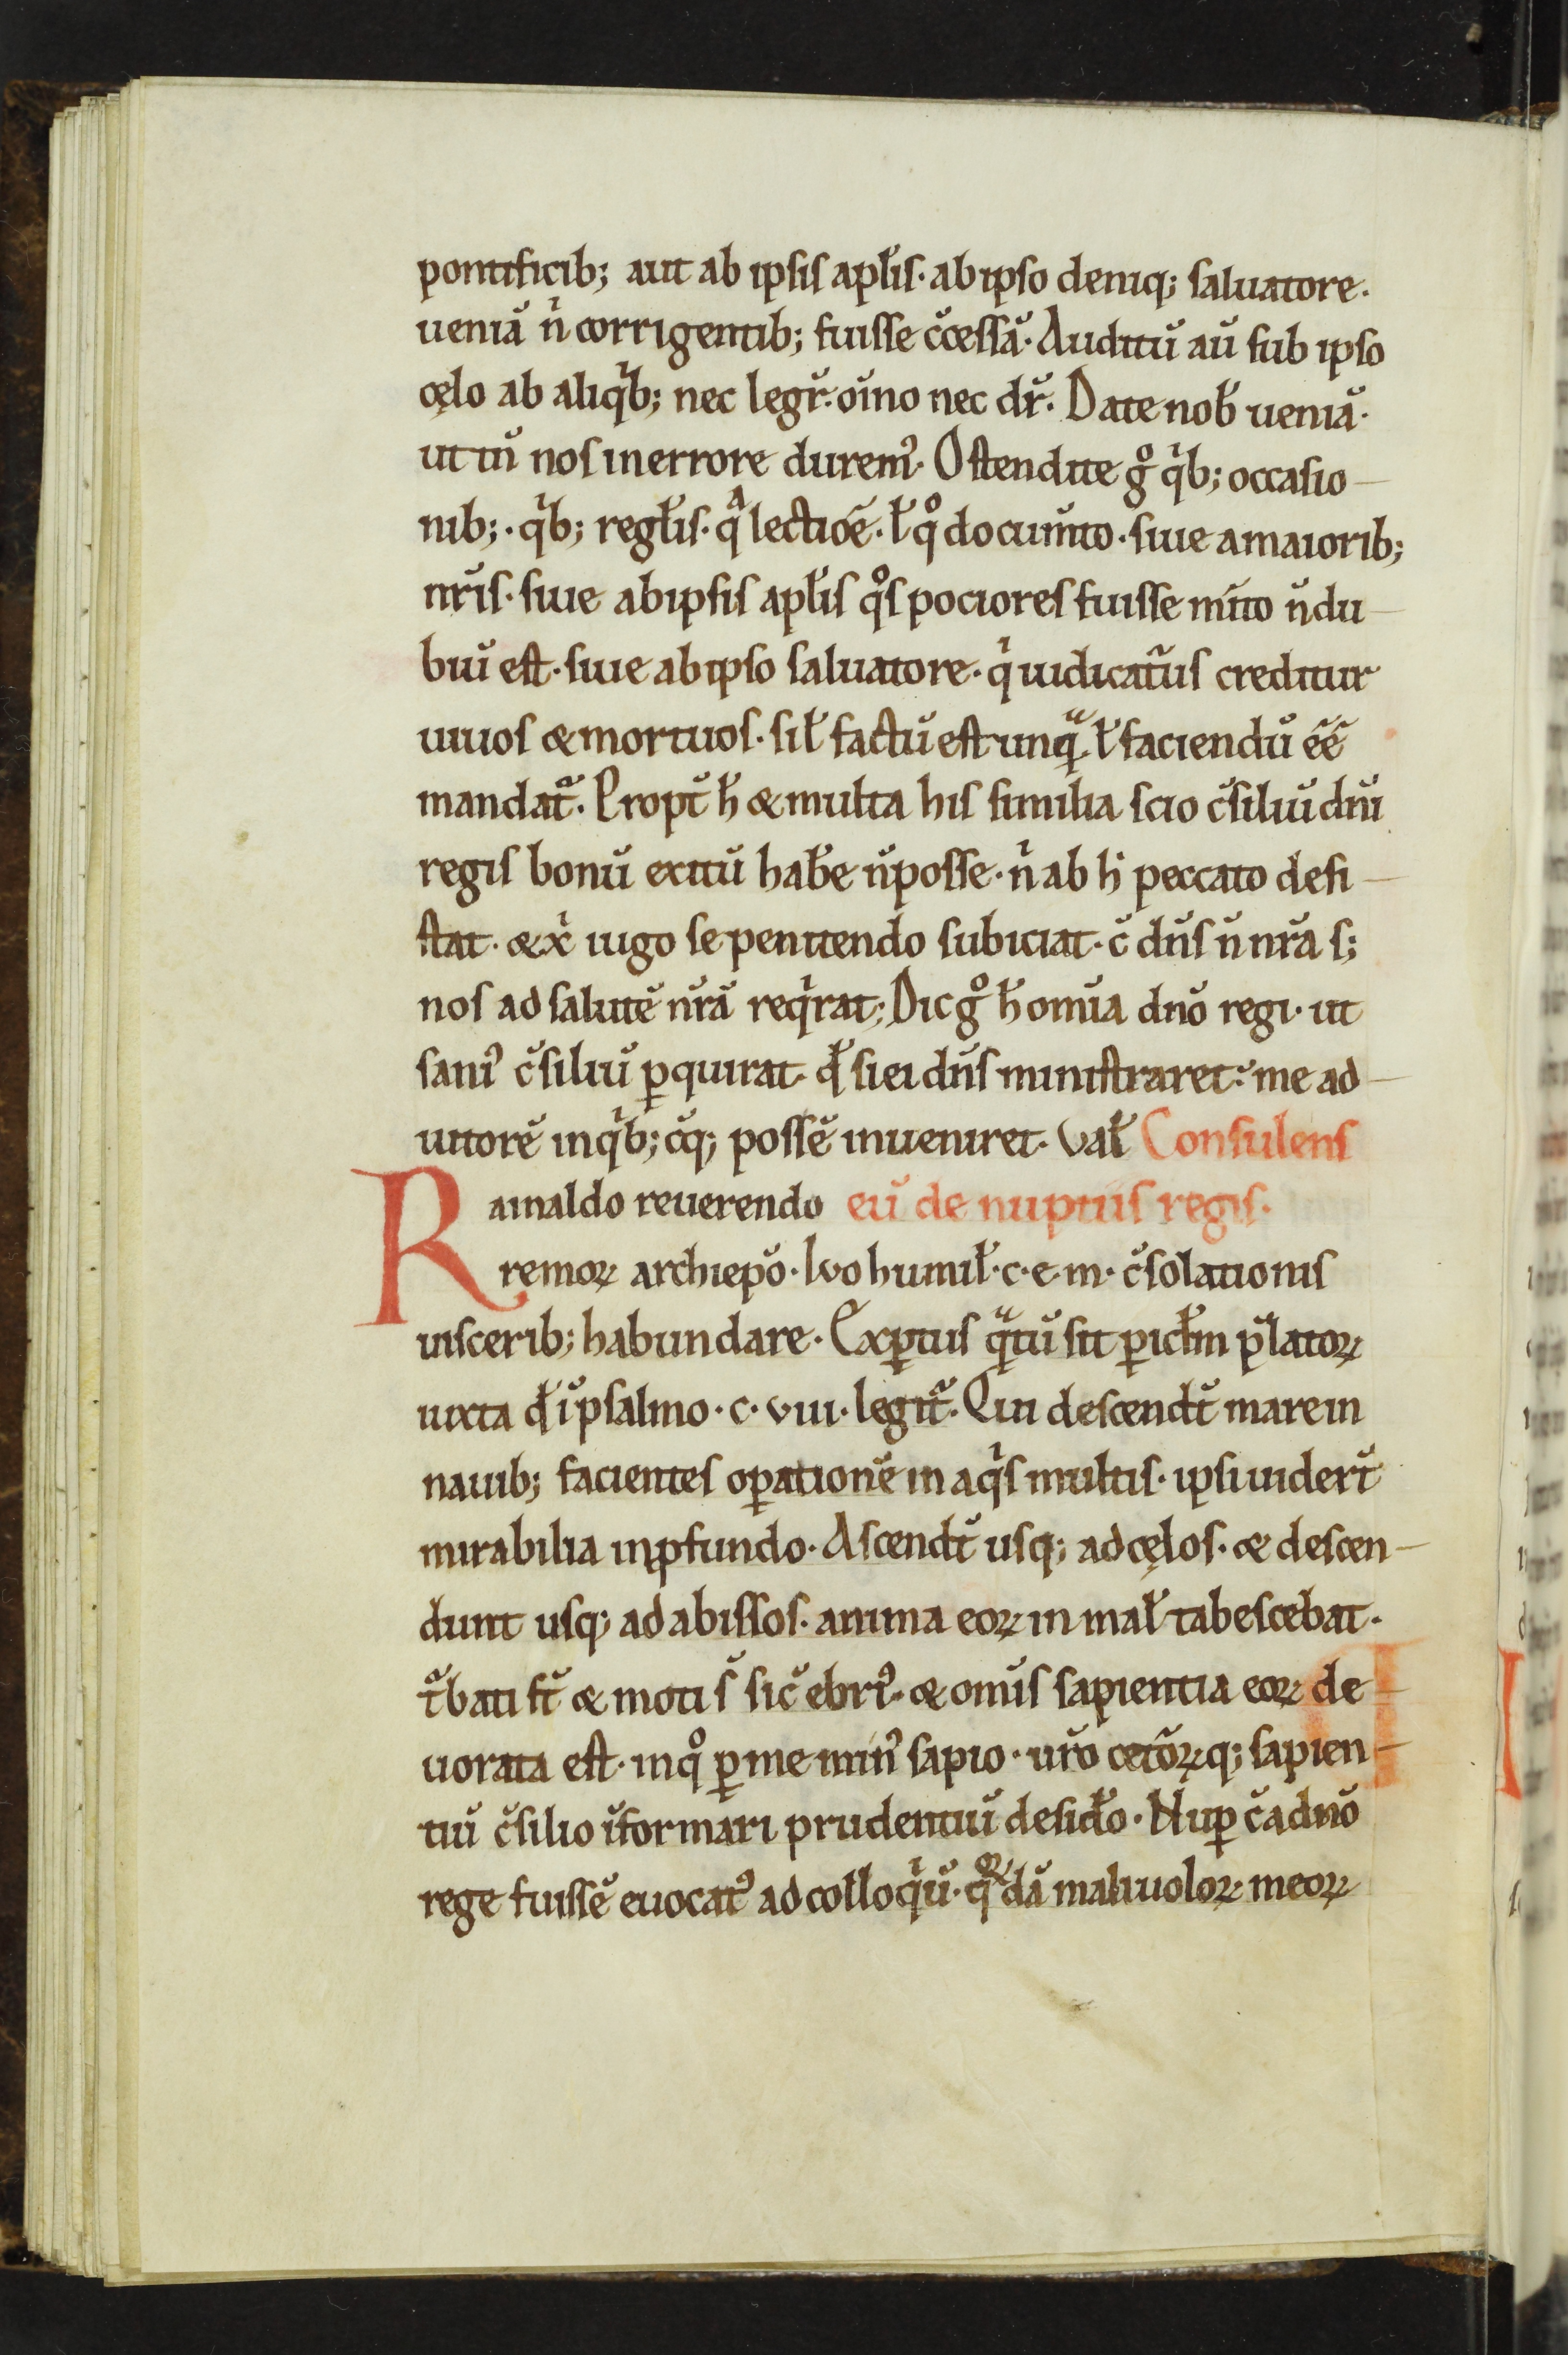 pontificib; aut ab ipsis apl̃is. ab ipso deniq; saluatore.
ueniã ñ corrigentib; fuisse c̃cessã. Auditũ aũ sub ipso
cęlo ab aliqͥb; nec legr̃. oĩno nec dr̃. Date nob̃ ueniã.
ut tñ nos in errore durem᷒. Ostendite gͦ qͥb; occasio
nib;. qͥb; regl̃is. qᷓ lectiõe. l̃ qͦ documto. siue a maiorib;
nr̃is. siue ab ipsis apl̃is qͦs pociores fuisse mito ñ du
biũ est. siue ab ipso saluatore. qͥ iudicat᷑us creditur
uiuos & mortuos. sil̃ factũ est unqᷓ. l̃ faciendũ eẽ
mandat᷑. Propt̃ h̃ & multa his similia scio c̃siliũ dñi
regis bonũ exitũ hab̃e ñ posse. nͥ ab hͦ peccato desi
stat. & xͥ iugo se penitendo subiciat. c̃ dñs ñ nr̃a s;
nos ad salutẽ nr̃ã reqͥrat; Dic gͦ h̃ omĩa dño regi. ut
sani᷒ c̃siliũ ꝑquirat. qđ si ei dñs ministraret: me ad
iutorẽ in qͥb; cũq; possẽ inueniret. Val̃ Consulens
Rainaldo reuerendo eũ de nuptiis regis.
remoꝝ archiepõ. Ivo humil̃. c. e. m. c̃solationis
uiscerib; habundare. Exꝑtus qᷓtũ sit ꝑicl̃m p̃latoꝝ
iuxta qđ ĩ psalmo. c. viii. legit᷑. Qui descendt̃ mare in
nauib; facientes oꝑationẽ in aqͥs multis. ipsi uidert̃
mirabilia in ꝓfundo. Ascendt̃ usq; ad cęlos. & descen
dunt usq; ad abissos. anima eoꝝ in mal̃ tabescebat.
t᷑bati st̃ & moti s̃ sic̃ ebri᷒. & omĩs sapientia eoꝝ de
uorata est. in qͦ ꝑ me min᷒ sapio. ur̃o cet᷑oꝝq; sapien
tiũ c̃silio ĩformari prudentiũ desiđo. Nuꝑ c̃ a dño
rege fuissẽ euocat᷒ ad colloqͥũ. qꝝdã maliuoloꝝ meoꝝ